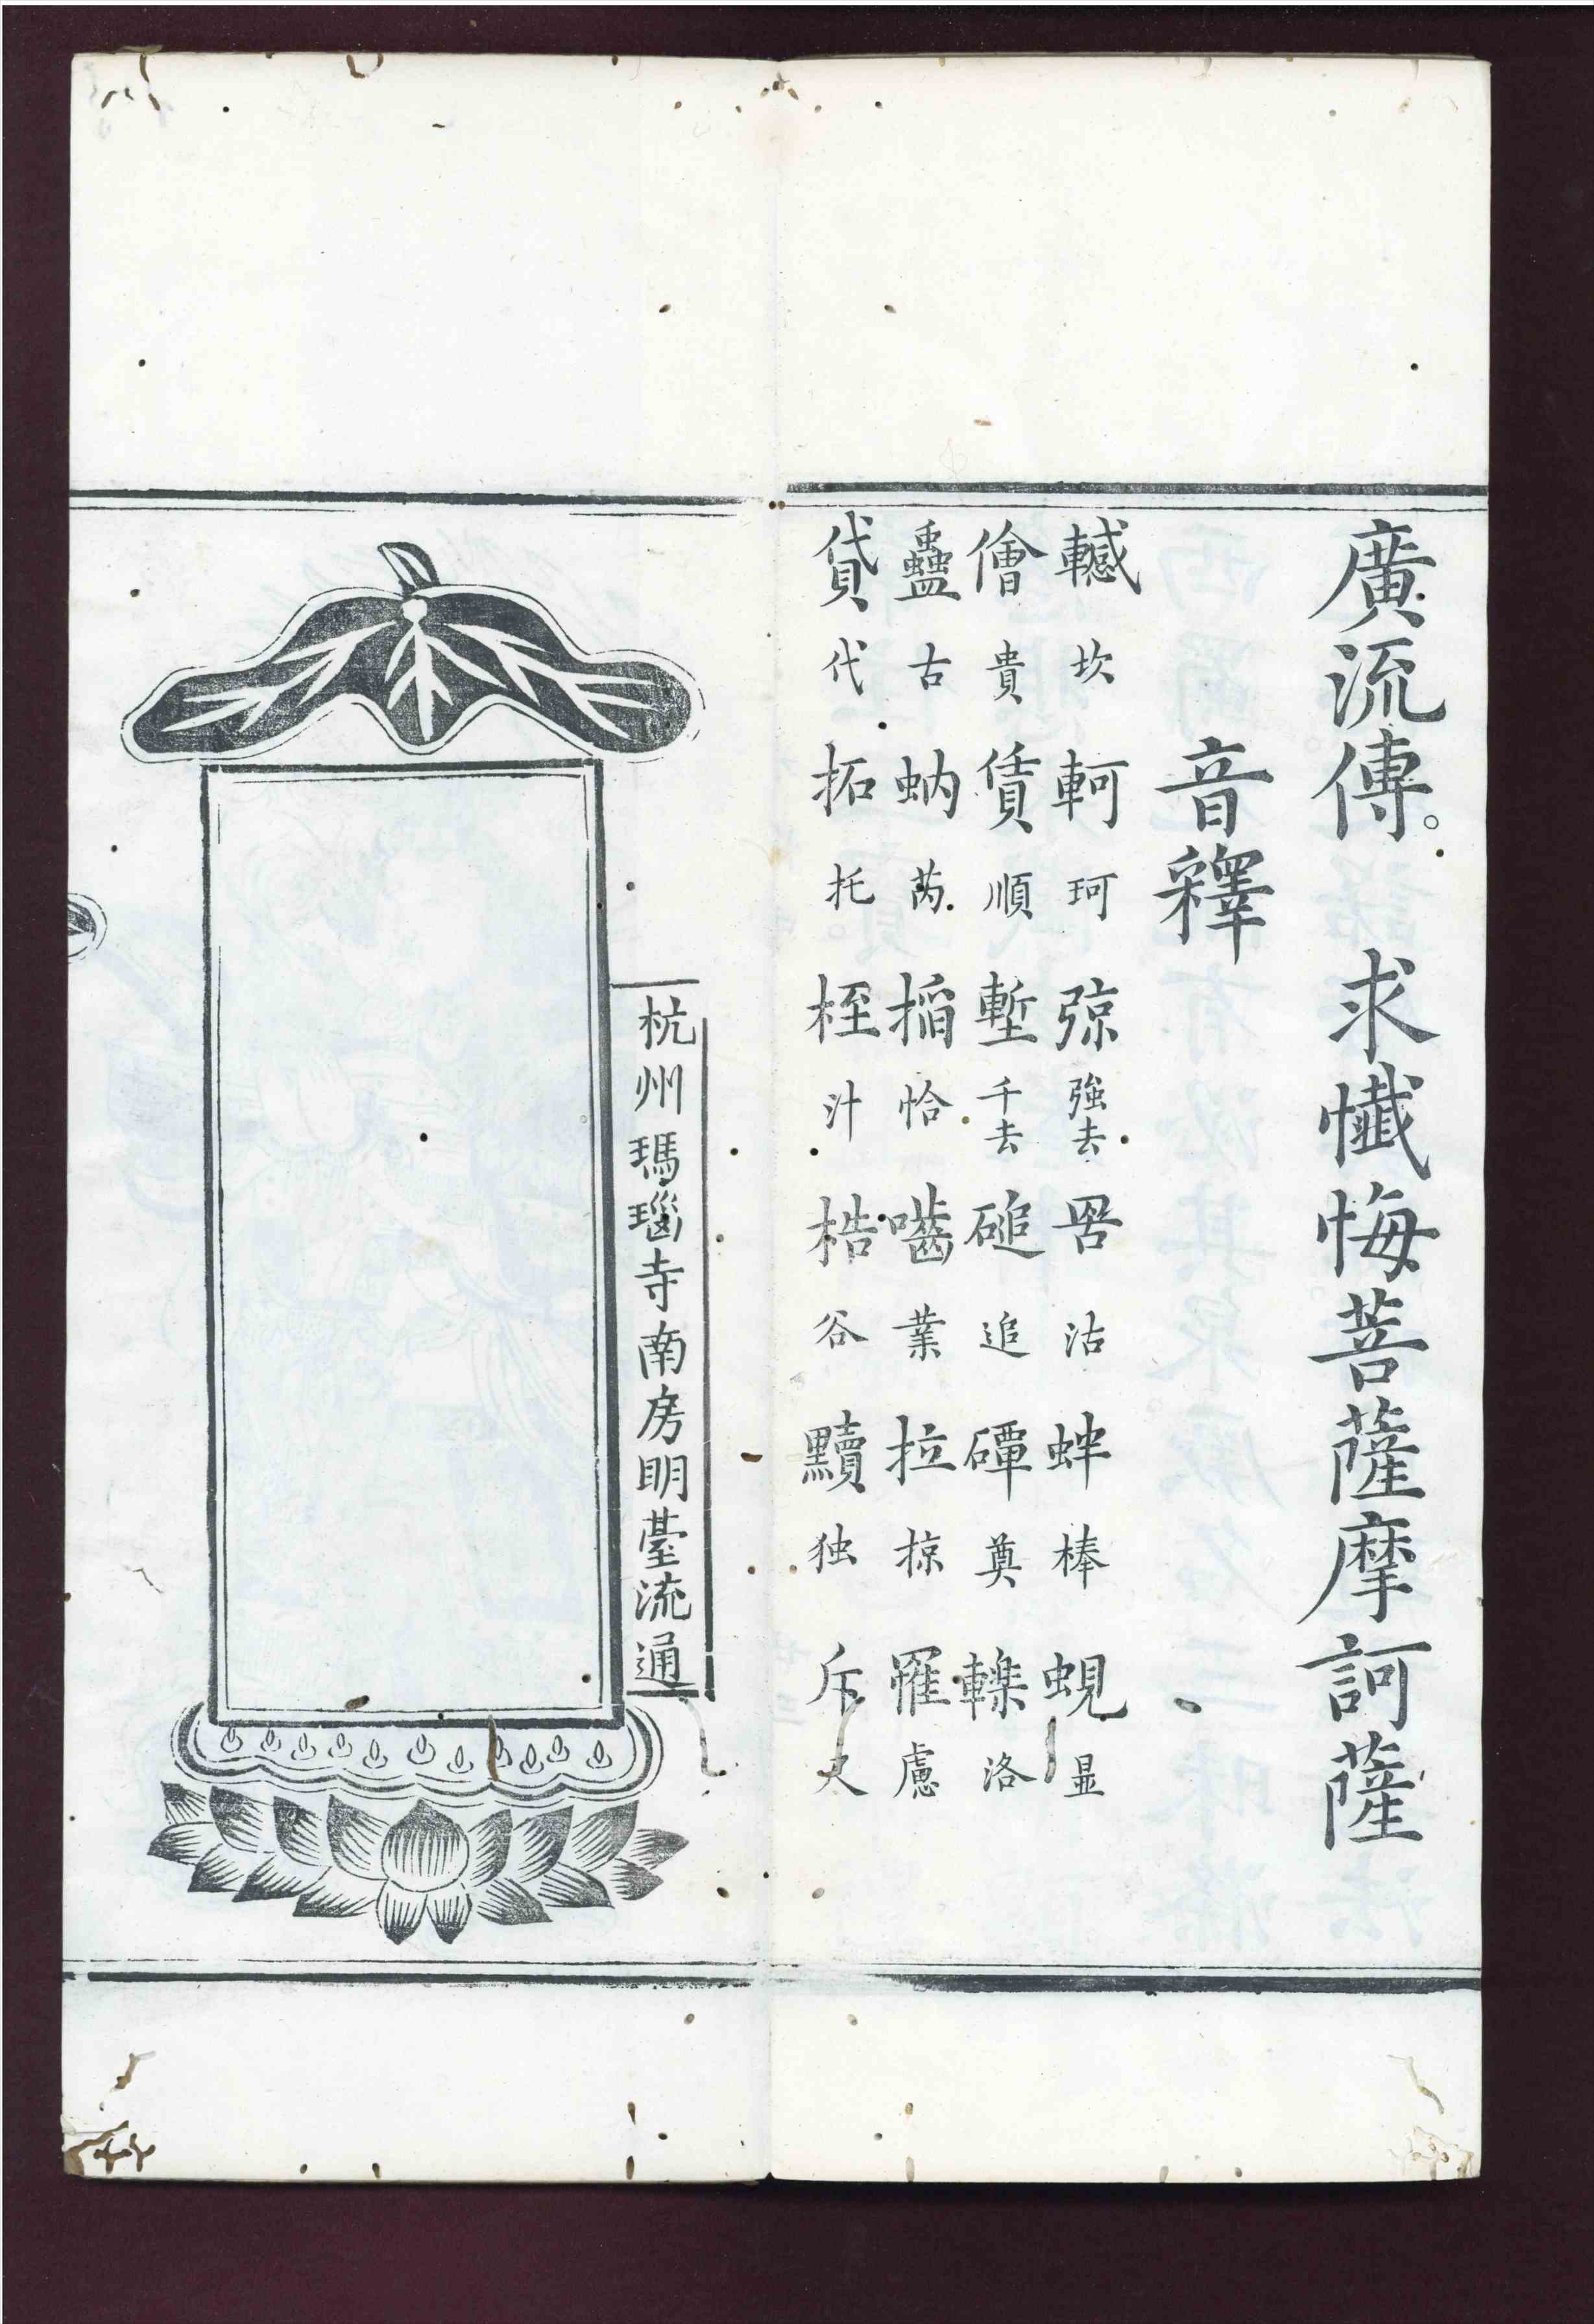 廣流傳。　求懺悔菩薩摩訶薩
音釋
轗 坎 軻 珂 弶 強去 罟 沽 蚌 棒 蜆 显
儈 貴 賃 順 塹 千去 磓 追 磹 奠 轢 洛
蠱 古 蚋 芮 掐 恰 嚙 業 拉 掠 罹 慮
貸 代 拓 托 桎 汁 梏 谷 黷 独 斥 尺
杭州瑪瑙寺南房明臺流通